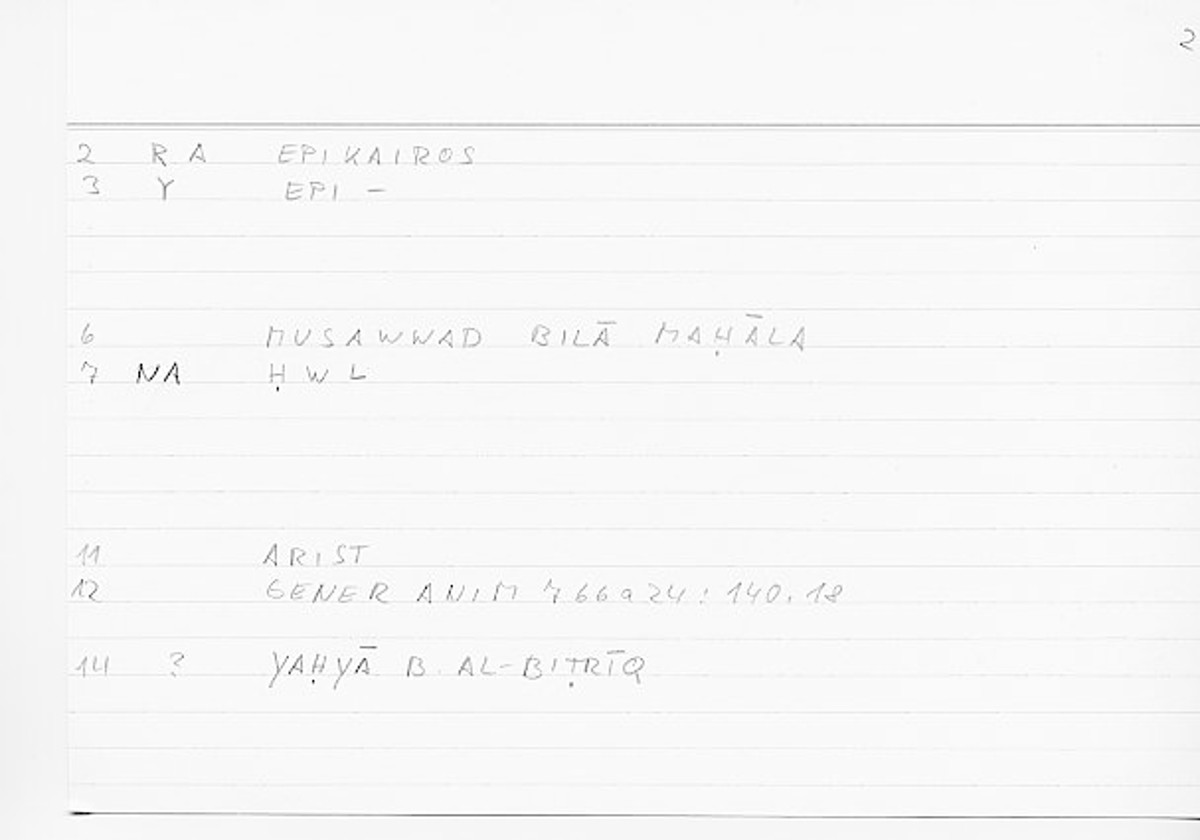 2
2 R A EPIKAIROS
3 Y EPI –
6 MUSAWWAD BILĀ MAḤĀLA
7 NA Ḥ W L
11 ARIST
12 GENER ANIM 766a24 : 140.18
14 ? YAḤYĀ B. AL-BIṬRĪQ